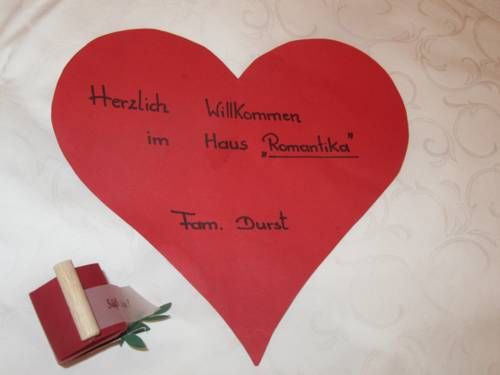 Herzlich Willkommen
im Haus „Romantika"
Fam. Durst